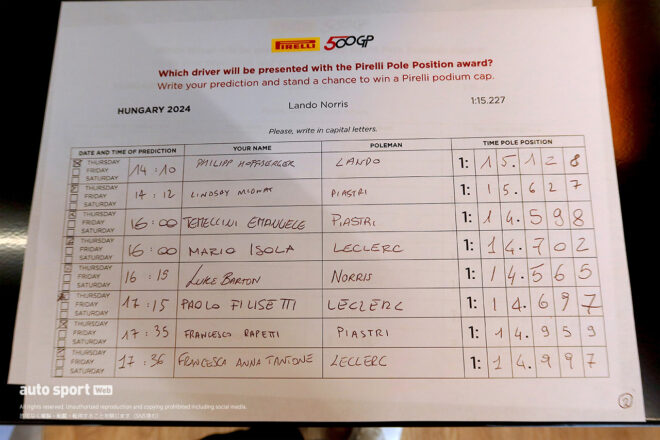 PIRELLI 500GP
Which driver will be presented with the Pirelli Pole Position award?
Write your prediction and stand a chance to win a Pirelli podium cap.
HUNGARY 2024 Lando Norris 1:15.227
Please, write in capital letters.
DATE AND TIME OF PREDICTION YOUR NAME POLEMAN TIME POLE POSITION
THURSDAY
FRIDAY 14:10 PHILIPP LANDO 1: 15.128
SATURDAY
THURSDAY
FRIDAY 14:12 LINDSAY PIASTRI 1: 15.627
SATURDAY
THURSDAY
FRIDAY 16:00 TEMELLINI EMANUELE PIASTRI 1: 14.598
SATURDAY
THURSDAY
FRIDAY 16:00 MARIO ISOLA LECLERC 1: 14.702
SATURDAY
THURSDAY
FRIDAY 16:15 LUKE BARTON NORRIS 1: 14.565
SATURDAY
THURSDAY
FRIDAY 17:15 PAOLO FILISETTI LECLERC 1: 14.697
SATURDAY
THURSDAY
FRIDAY 17:35 FRANCESCO RAPETTI PIASTRI 1: 14.959
SATURDAY
THURSDAY
FRIDAY 17:36 FRANCESCA ANNA TANTONE LECLERC 1: 14.997
SATURDAY
auto sport Web
All rights reserved. Unauthorized reproduction and copying prohibited including social media.
2